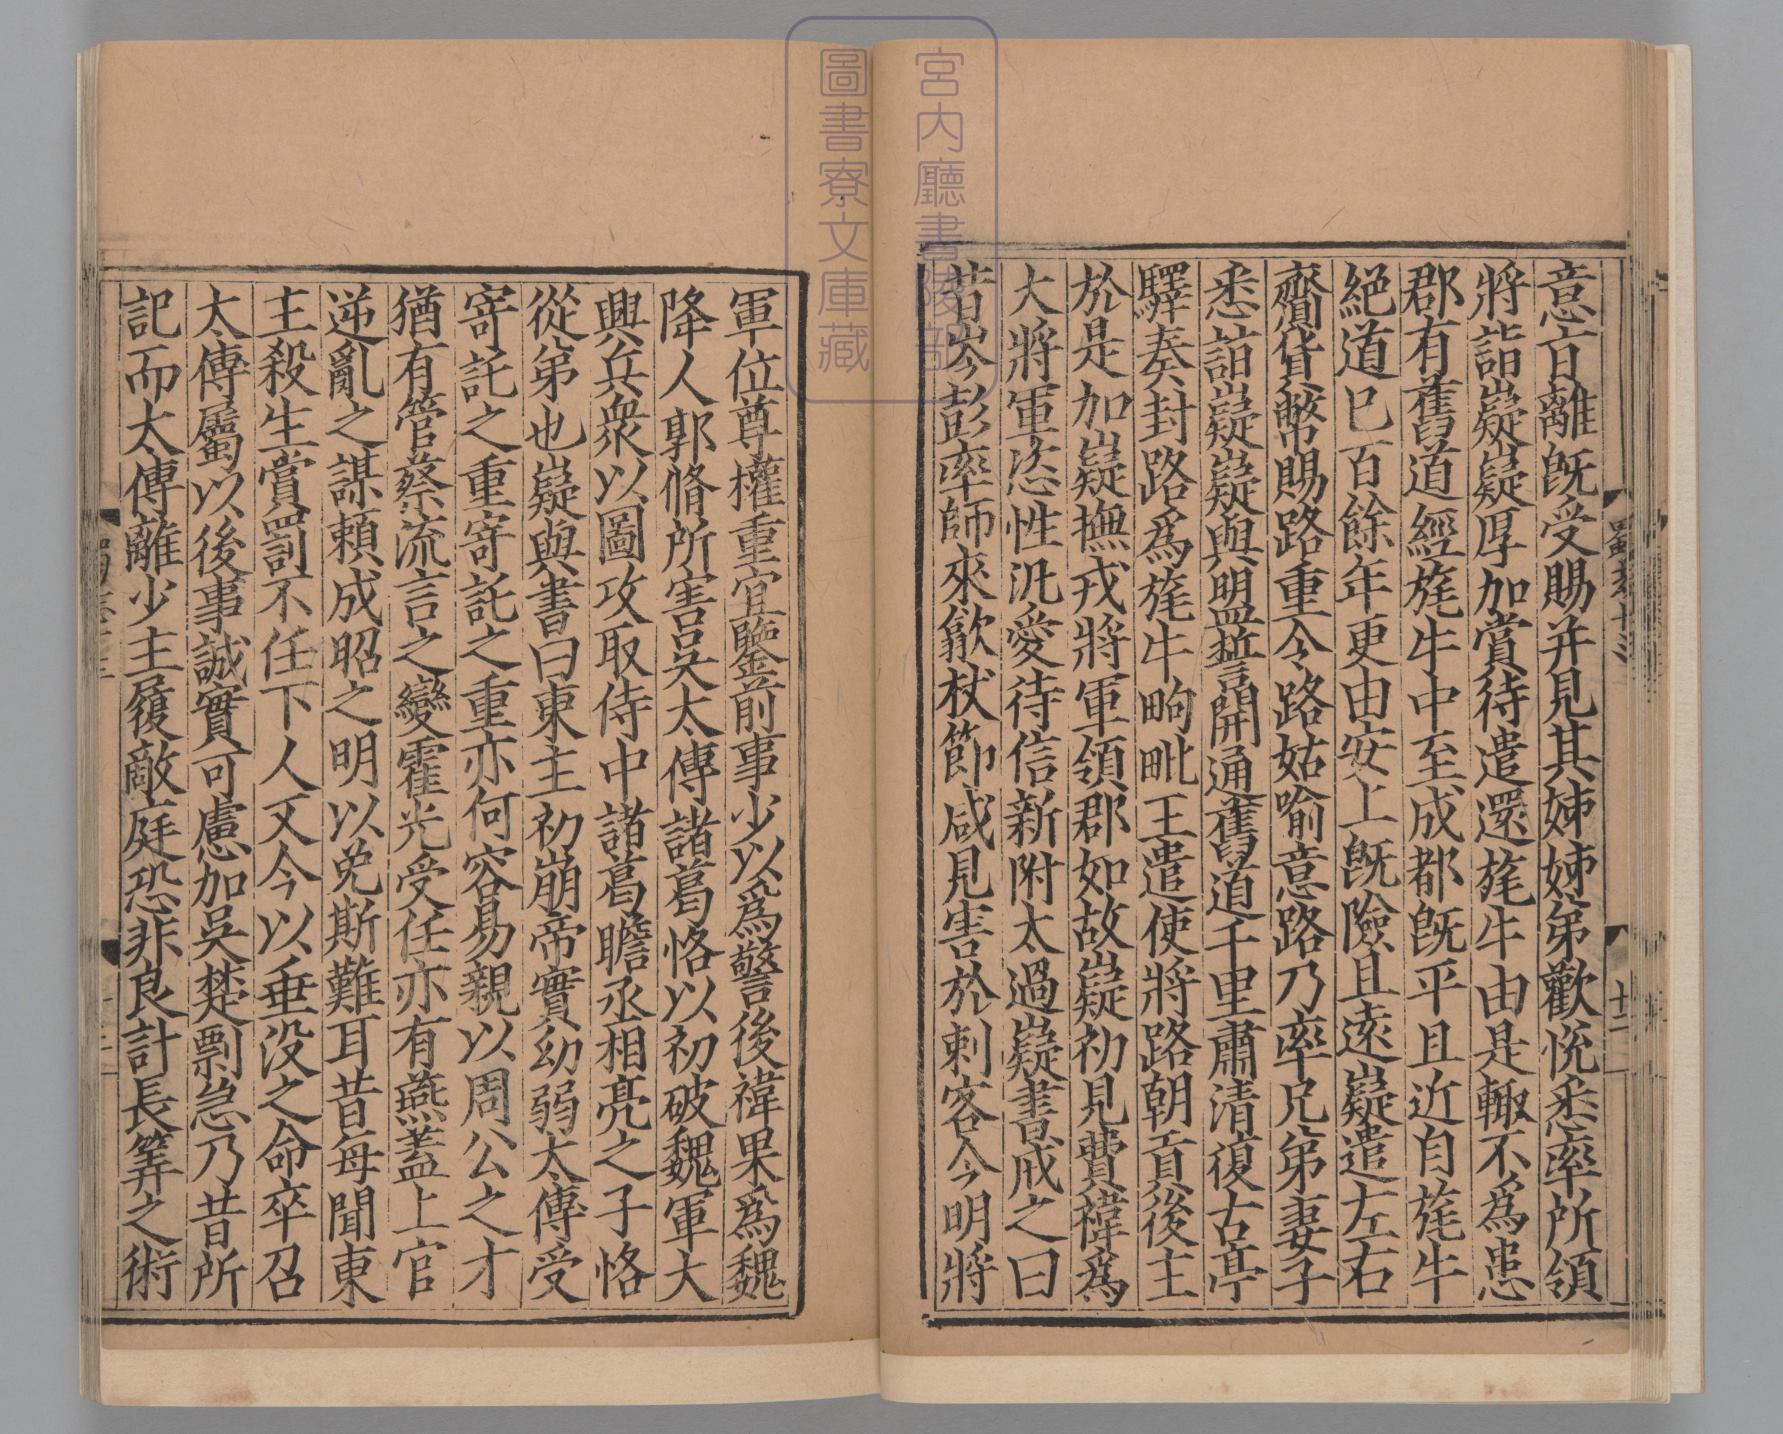 意官離既受賜并見其姊姊弟歡恱悉率所領
將詣嶷嶷厚加賞待遣還旄牛由是輙不爲患
郡有舊道經旄牛中至成都既平且近自旄牛
絕道巳百餘年更由安上既險且逺嶷遣左右
齎貨幣賜路重令路姑喻意路乃率兄弟妻子
悉詣嶷嶷與盟誓開通舊道千里肅清復古亭
驛奏封路爲旄牛㽛毗王遣使將路朝貢後主
於是加嶷撫戎將軍領郡如故嶷初見費禕爲
大將軍恣性汎愛待信新附太過嶷書戒之曰
昔岑彭率師來歙杖節咸見害於刺客今明將
軍位尊權重宜鑒前事少以爲警後禕果爲魏
降人郭脩所害吳太傅諸葛恪以初破魏軍大
興兵衆以圖攻取侍中諸葛瞻丞相亮之子恪
從弟也嶷與書曰東主初崩帝實幼弱太傅受
寄託之重寄託之重亦何容易親以周公之才
猶有管蔡流言之變霍光受任亦有燕蓋上官
逆亂之謀賴成昭之明以免斯難耳昔每聞東
主殺生賞罰不任下人又今以垂没之命卒召
太傅屬以後事誠實可慮加吳楚剽急乃昔所
記而太傅離少主履敵庭恐非良計長筭之術
十二
宮内廳書陵部
圖書寮文庫藏